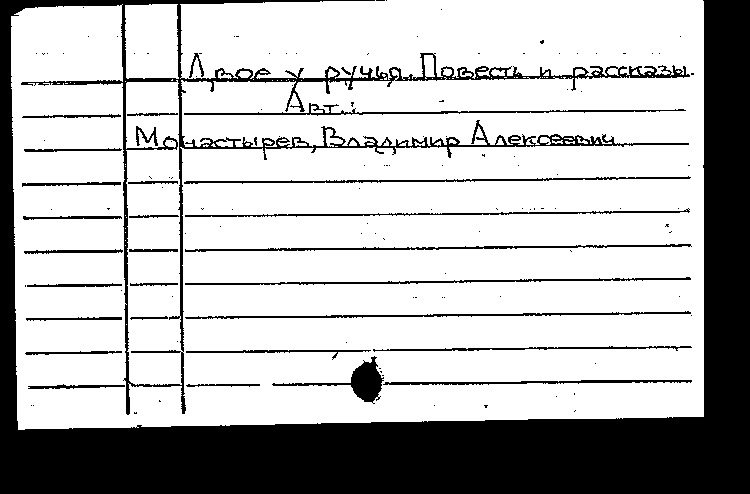 Двое у ручья. Повесть и рассказы.
Авт.:
Монастырев, Владимир Алексеевич